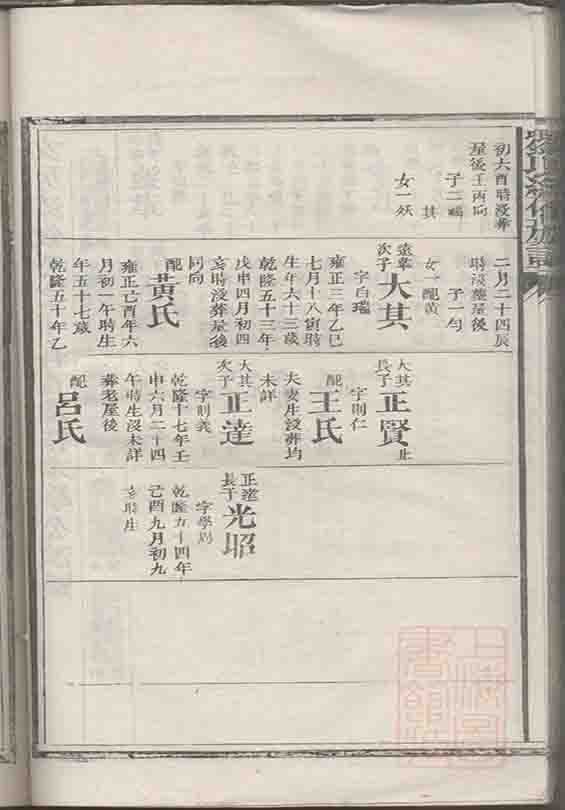 初六酉時沒葬
屋後壬丙向
子二
其
女一妖
二月二十四辰
時沒葬屋後
子一勻
女一配黃
次子大其
字白瑞
雍正三年乙巳
七月十八寅時
生年六十三歲
乾隆五十三年
戊申四月初四
亥時沒葬屋後
同向
配黃氏
雍正己酉年六
月初一午時生
年五十七歲
乾隆五十年乙
大其長子正賢止
字則仁
配王氏
夫妻生沒葬均
未詳
大其次子正達
字則義
乾隆十七年壬
申六月二十四
午時生沒未詳
葬老屋後
配呂氏
正達長子光昭
字學
乾隆五十四年
己酉九月初九
亥時生
上海圖書館藏